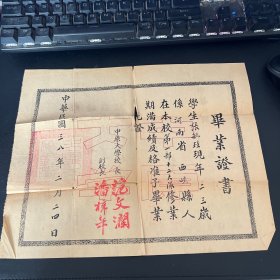 畢業證書
學生張
現年二三歲
係河南省西峽縣人
在本校第一部十二大隊修業
期滿成績及格准予畢業
此證
中原大學校長 范文瀾
副校長 潘梓年
中華民國三八年二月二四日